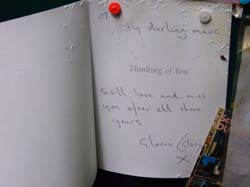 my darling
Thinking of You
Still love and miss
you after all these
years
Gloria
X